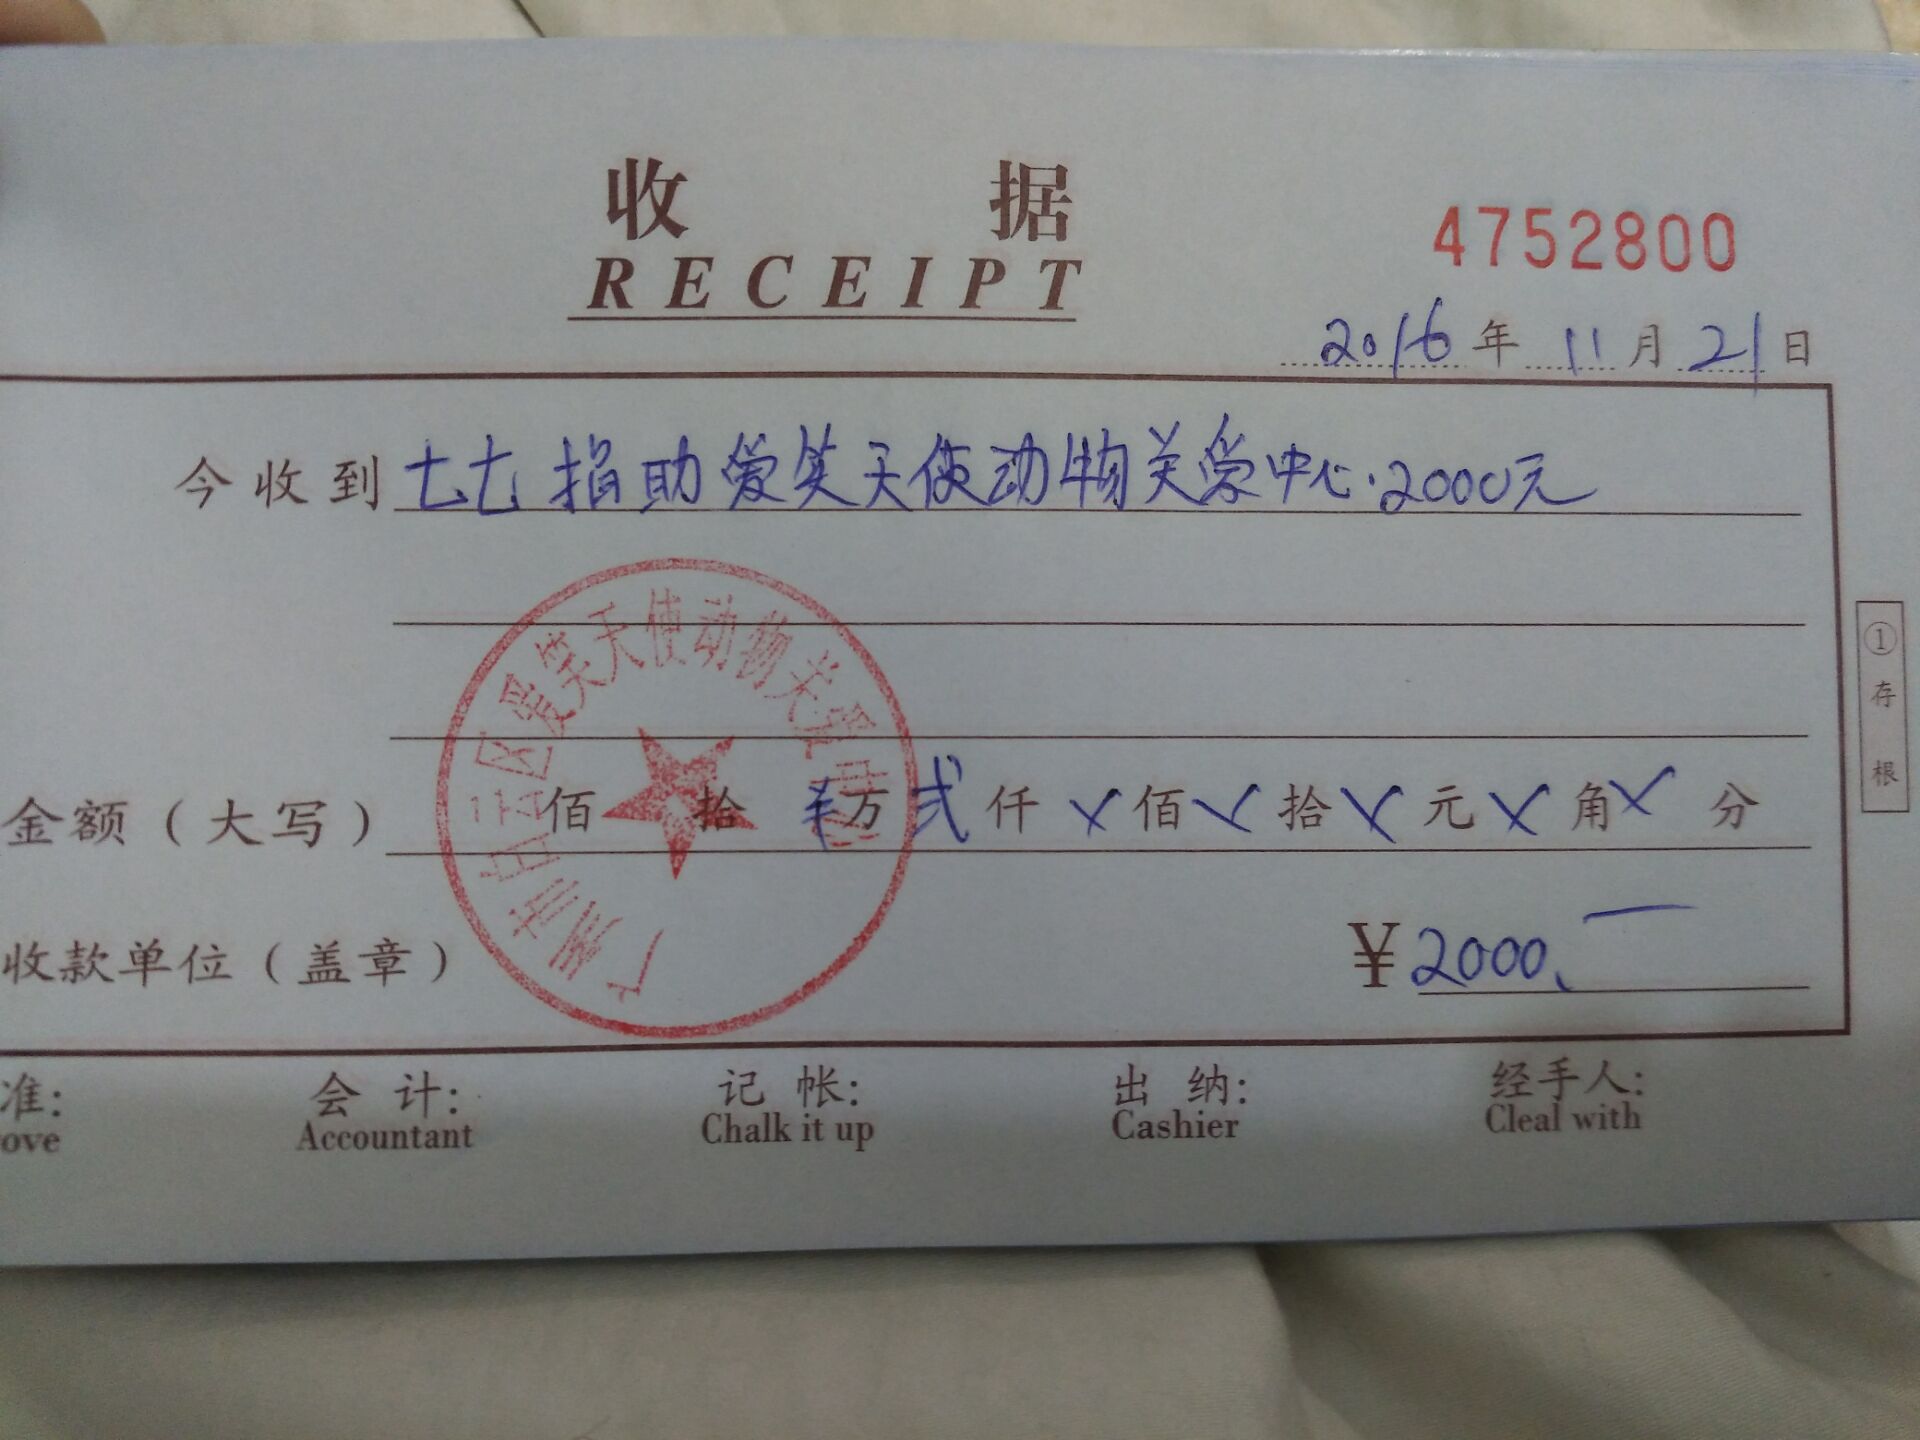 收 据
RECEIPT
4752800
2016年11月21日
今收到七七捐助爱笑天使动物关爱中心.2000元
广州市白云区爱笑天使动物关爱中心
金额（大写） 佰 拾 ¥万 弍仟 ×佰 ×拾 ×元 ×角 ×分
收款单位（盖章） ¥2000、一
①存根
准: 会 计: 记 帐: 出 纳: 经手人:
ove Accountant Chalk it up Cashier Cleal with